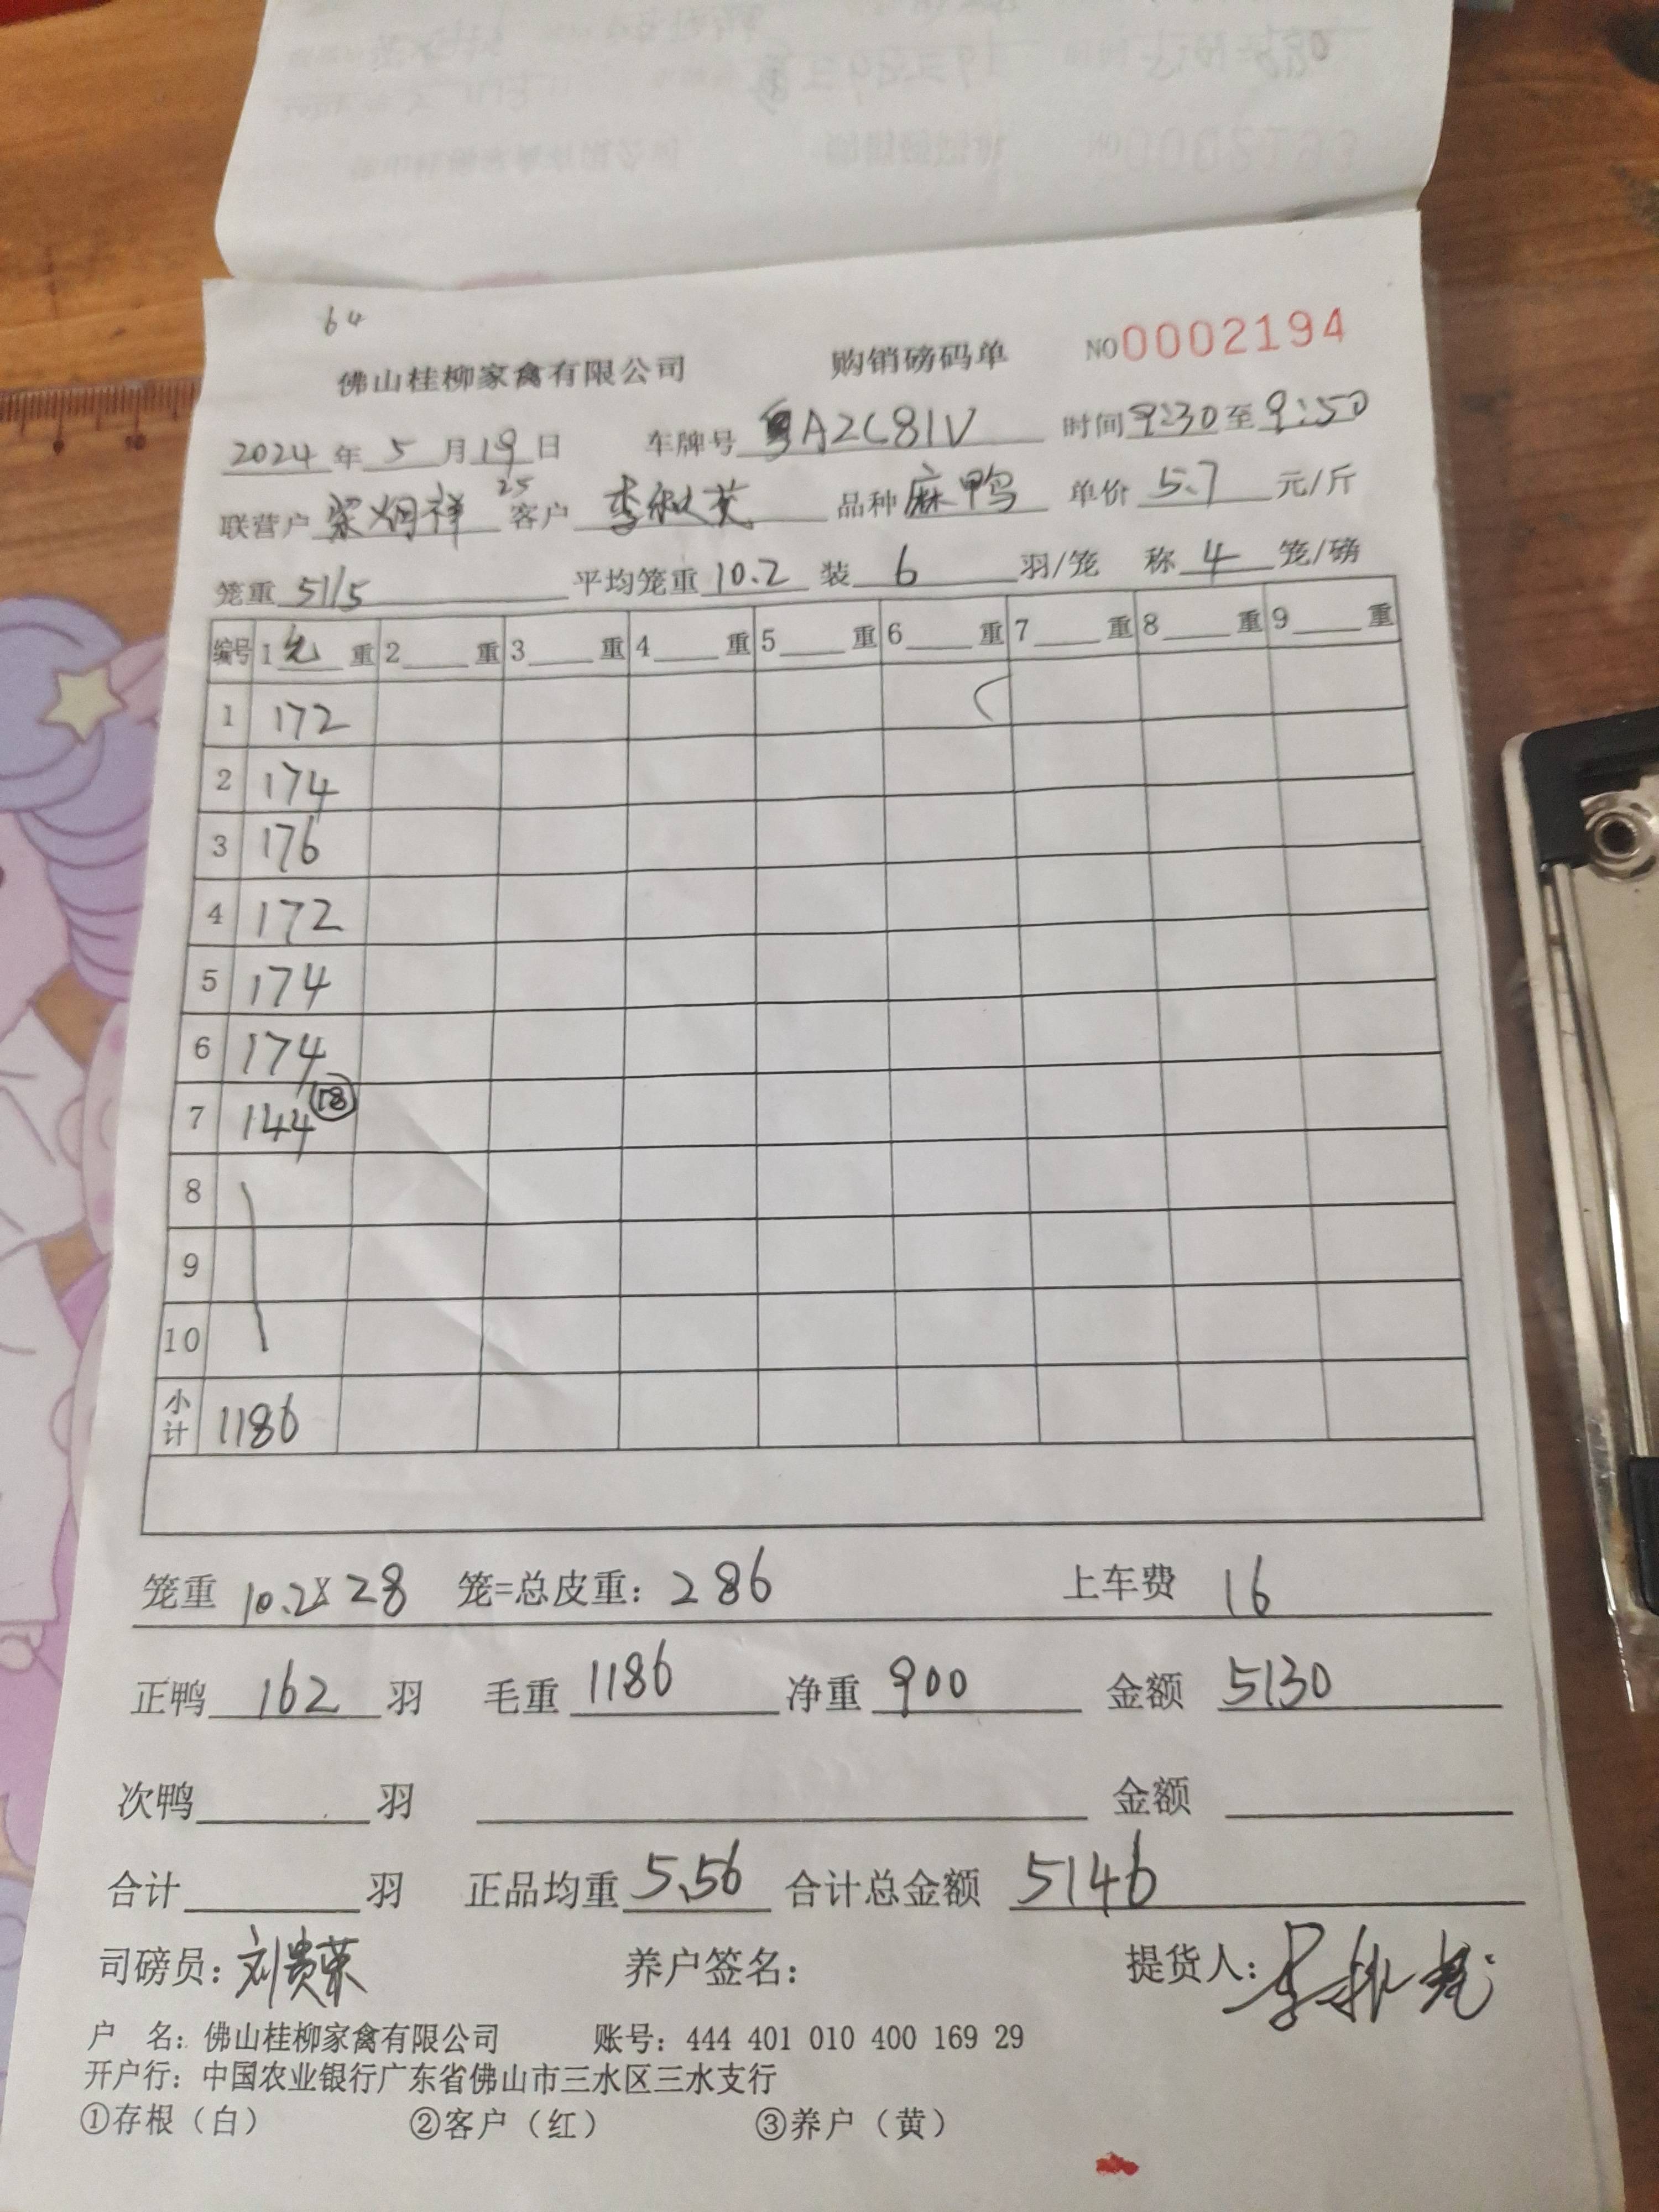 64
佛山桂柳家禽有限公司 购销磅码单 NO0002194
2024年5月19日 车牌号 粤A2C81V 时间9:30至9:50
联营户 梁炯祥 25 客户 品种麻鸭 单价5.7元/斤
笼重 51/5 平均笼重10.2 装6羽/笼 称4笼/磅
编号 1 重 2 重 3 重 4 重 5 重 6 重 7 重 8 重 9 重
1 172
2 174
3 176
4 172
5 174
6 174
7 144 ⑱
8
9
10
小计 1186
笼重 10.2×28 笼=总皮重：286 上车费 16
正鸭162羽 毛重1186 净重900 金额5130
次鸭 羽 金额
合计 羽 正品均重5.56 合计总金额5146
司磅员：刘贵荣 养户签名： 提货人：
户 名：佛山桂柳家禽有限公司 账号：444 401 010 400 169 29
开户行：中国农业银行广东省佛山市三水区三水支行
①存根（白） ②客户（红） ③养户（黄）